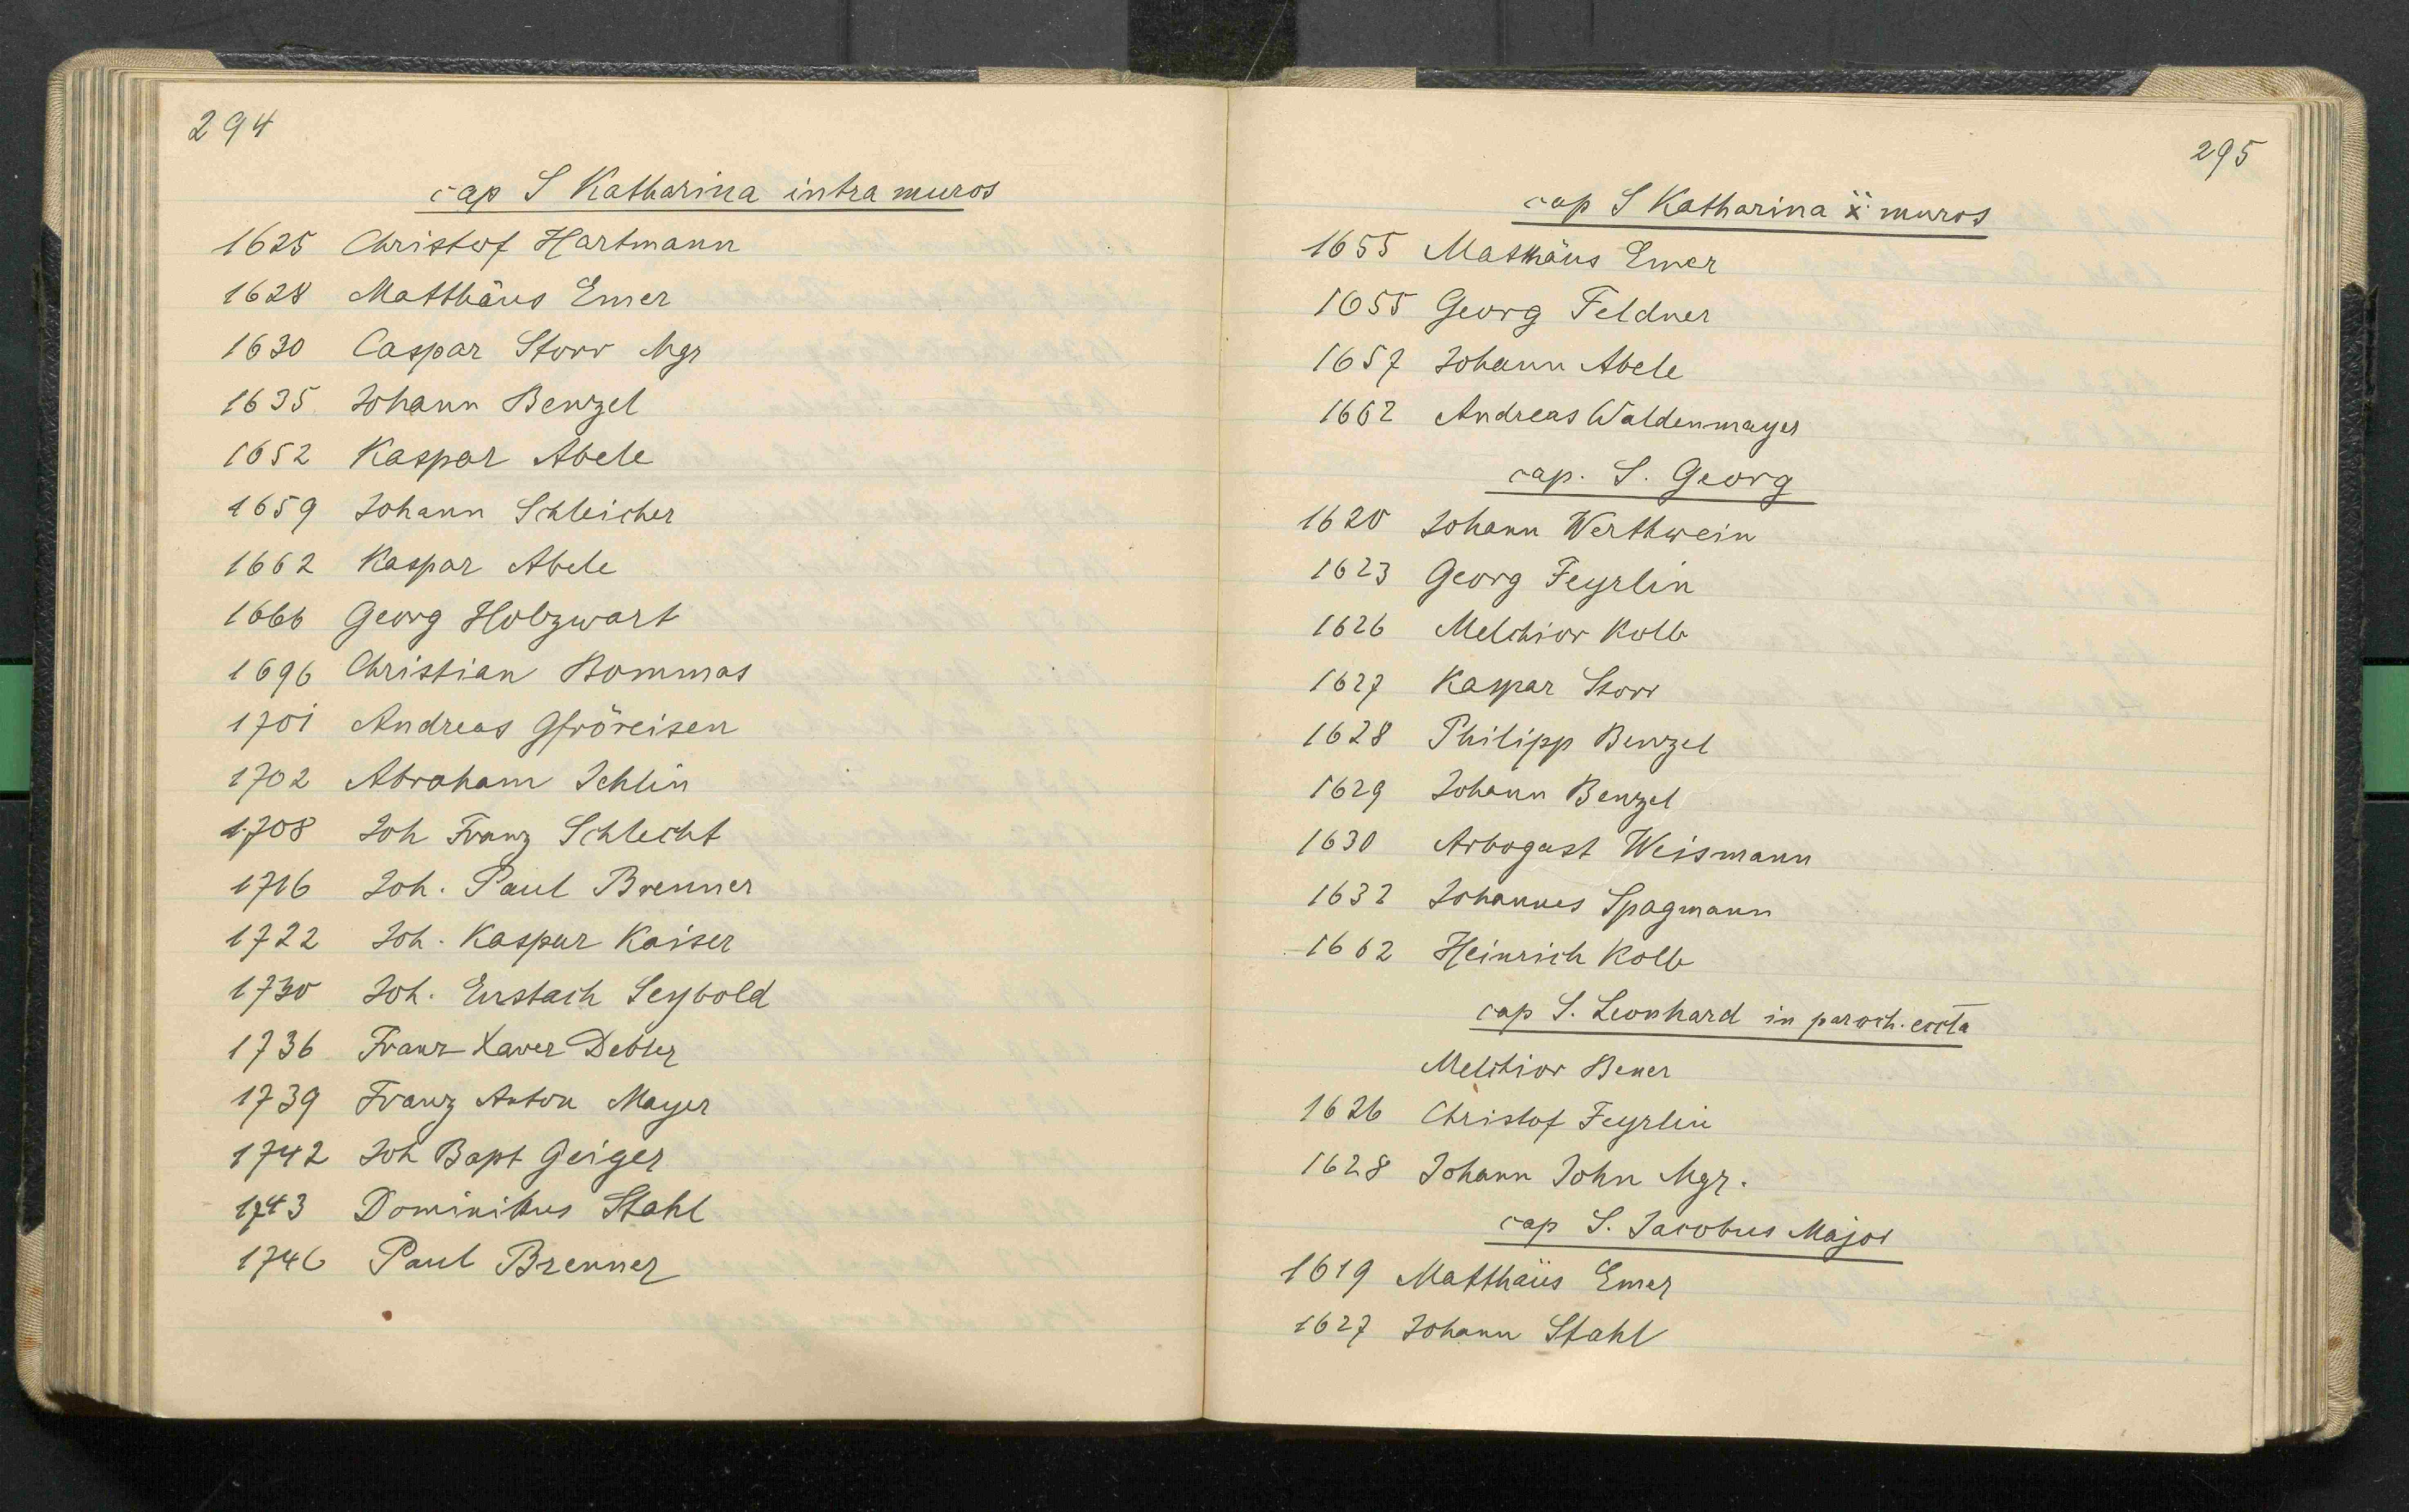 294
cap S Katharina intra muros
1625 Christof Hartmann
1628 Matthäus Emer
1630 Caspar Storr Mgr
1635 Johann Benzel
1652 Kaspar Abele
1659 Johann Schleicher
1662 Kaspar Abele
1666 Georg Holzwart
1696 Christian Bommas
1701 Andreas Gfröreisen
1702 Abraham Jehlin
1708 Joh Franz Schlecht
1716 Joh. Paul Brenner
1722 Joh. Kaspar Kaiser
1730 Joh. Eustach Seybold
1736 Franz Xaver Debler
1739 Franz Anton Mayer
1742 Joh Bapt Geiger
1743 Dominikus Stahl
1746 Paul Brenner
295
cap S Katharina muros
1655 Mathäus Emer
1655 Georg Feldner
1657 Johann Abele
1662 Andreas Waldenmayer
cap. S. Georg
1620 Johann Werthwein
1623 Georg Feyrlin
1626 Melchior Kolb
1627 Kaspar Storr
1628 Philipp Benzel
1629 Johann Benzel
1630 Arbogast Weismann
1632 Johannes Spagmann
1662 Heinrich Kolb
cap S. Leonhard in paroch. eccla
Melchior Bener
1626 Christof Feyrlin
1628 Johann John Mgr.
cap S. Jacobus Major
1619 Matthäus Emer
1627 Johann Stahl